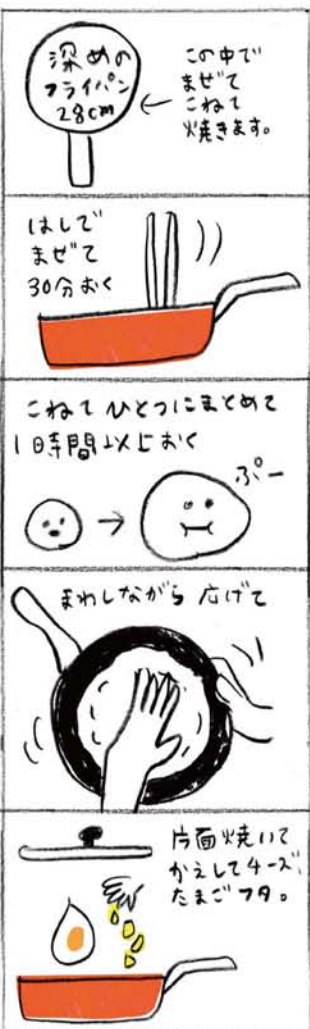 深めの
フライパン
28cm
この中で
まぜて
こねて
焼きます。
はしで
まぜて
30分おく
こねてひとつにまとめて
1時間以上おく
ぷー
まわしながら広げて
片面焼いて
かえしてチーズ、
たまごフタ。